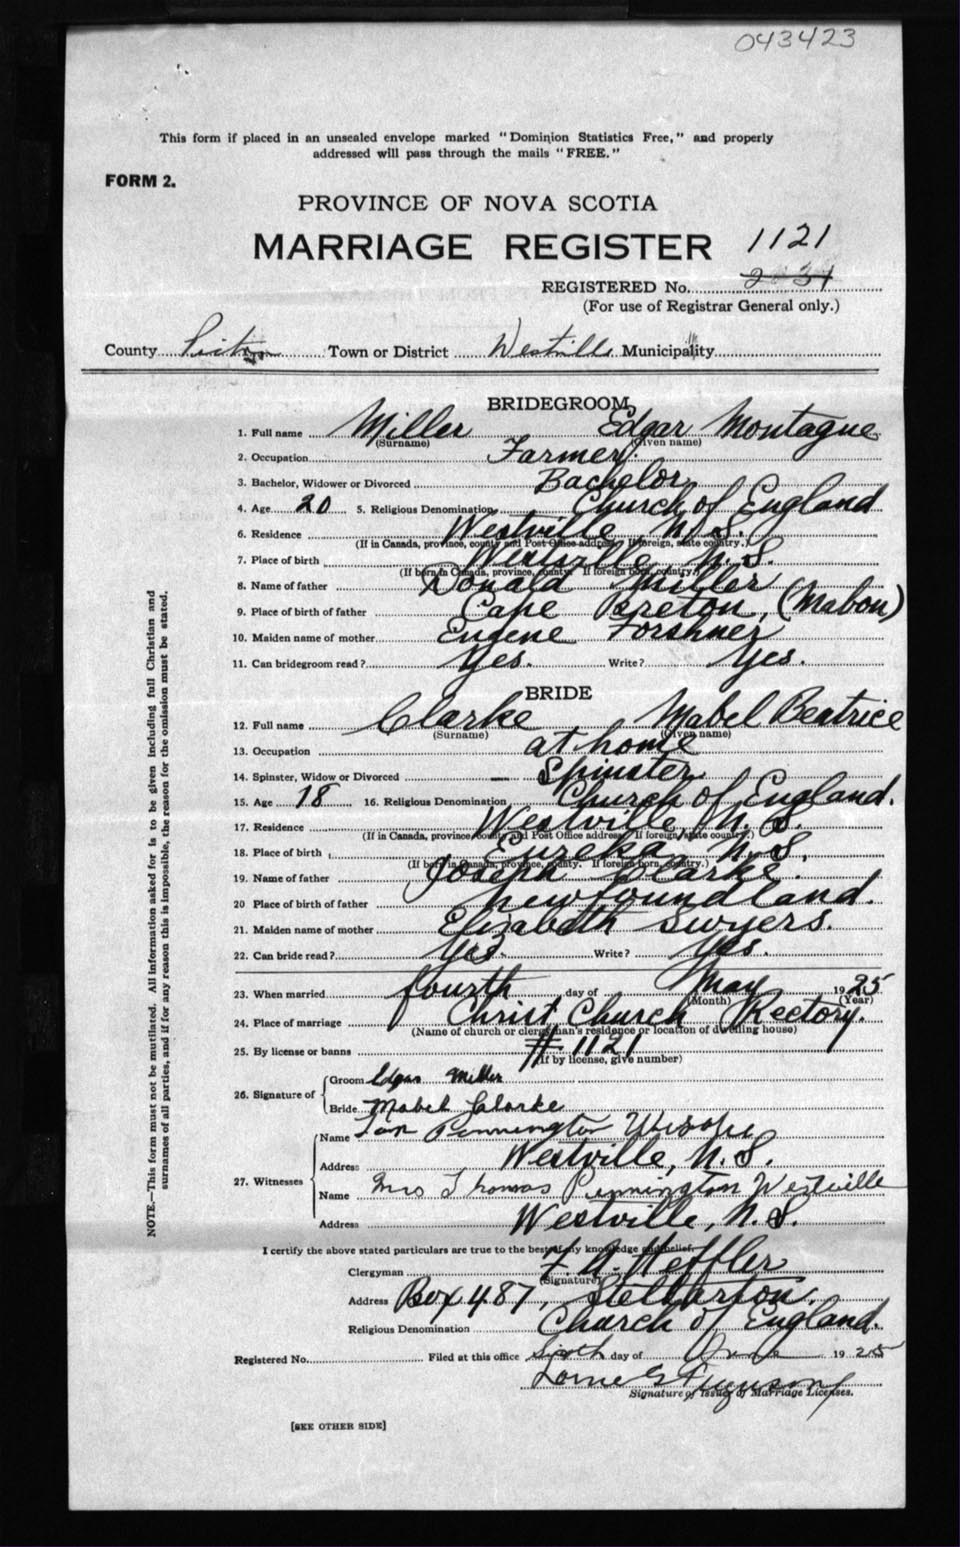 043423
This form if placed in an unsealed envelope marked "Dominion Statistics Free," and properly
addressed will pass through the mails "FREE."
FORM 2.
PROVINCE OF NOVA SCOTIA
MARRIAGE REGISTER 1121
REGISTERED No. 2031
(For use of Registrar General only.)
County Pictou Town or District Westville Municipality
BRIDEGROOM
1. Full name Miller Edgar Montague
(Surname) (Given name)
2. Occupation Farmer.
3. Bachelor, Widower or Divorced Bachelor
4. Age 20 5. Religious Denomination Church of England
6. Residence Westville, N.S.
(If in Canada, province, county and Post Office address. If foreign, state country.)
7. Place of birth Westville N.S.
(If born in Canada, province, county. If foreign born, country.)
8. Name of father Donald Miller
9. Place of birth of father Cape Breton, (Mabou)
10. Maiden name of mother Eugene Forshner
11. Can bridegroom read? Yes. Write? Yes.
BRIDE
12. Full name Clarke Mabel Beatrice
(Surname) (Given name)
13. Occupation at home
14. Spinster, Widow or Divorced — Spinster
15. Age 18 16. Religious Denomination Church of England.
17. Residence Westville, N.S.
(If in Canada, province county and Post Office address. If foreign, state country.)
18. Place of birth Eureka N.S.
(If born in Canada, province, county. If foreign born, country.)
19. Name of father Joseph Clarke.
20 Place of birth of father Newfoundland.
21. Maiden name of mother Elizabeth Swyers.
22. Can bride read? Yes. Write? Yes.
23. When married fourth day of May 1925
(Month) (Year)
24. Place of marriage Christ Church Rectory.
(Name of church or clergyman's residence or location of dwelling house)
25. By license or banns # 1121
(If by license, give number)
26. Signature of
Groom Edgar Miller
Bride Mabel Clarke
27. Witnesses
Name Pennington
Address Westville, N.S.
Name Mrs Thomas Pennington Westville
Address Westville, N.S.
I certify the above stated particulars are true to the best of my knowledge and belief.
Clergyman F. A. Heffler
(Signature)
Address Box 487, Stellarton.
Religious Denomination Church of England.
Registered No. Filed at this office Sixth day of 1925
Lorne G Ferguson
Signature of Issuer of Marriage Licenses.
[SEE OTHER SIDE]
NOTE.—This form must not be mutilated. All information asked for is to be given including full Christian and
surnames of all parties, and if for any reason this is impossible, the reason for the omission must be stated.